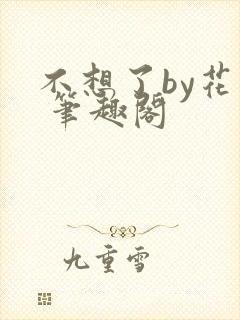 不想了by花
笔趣阁
九重雪